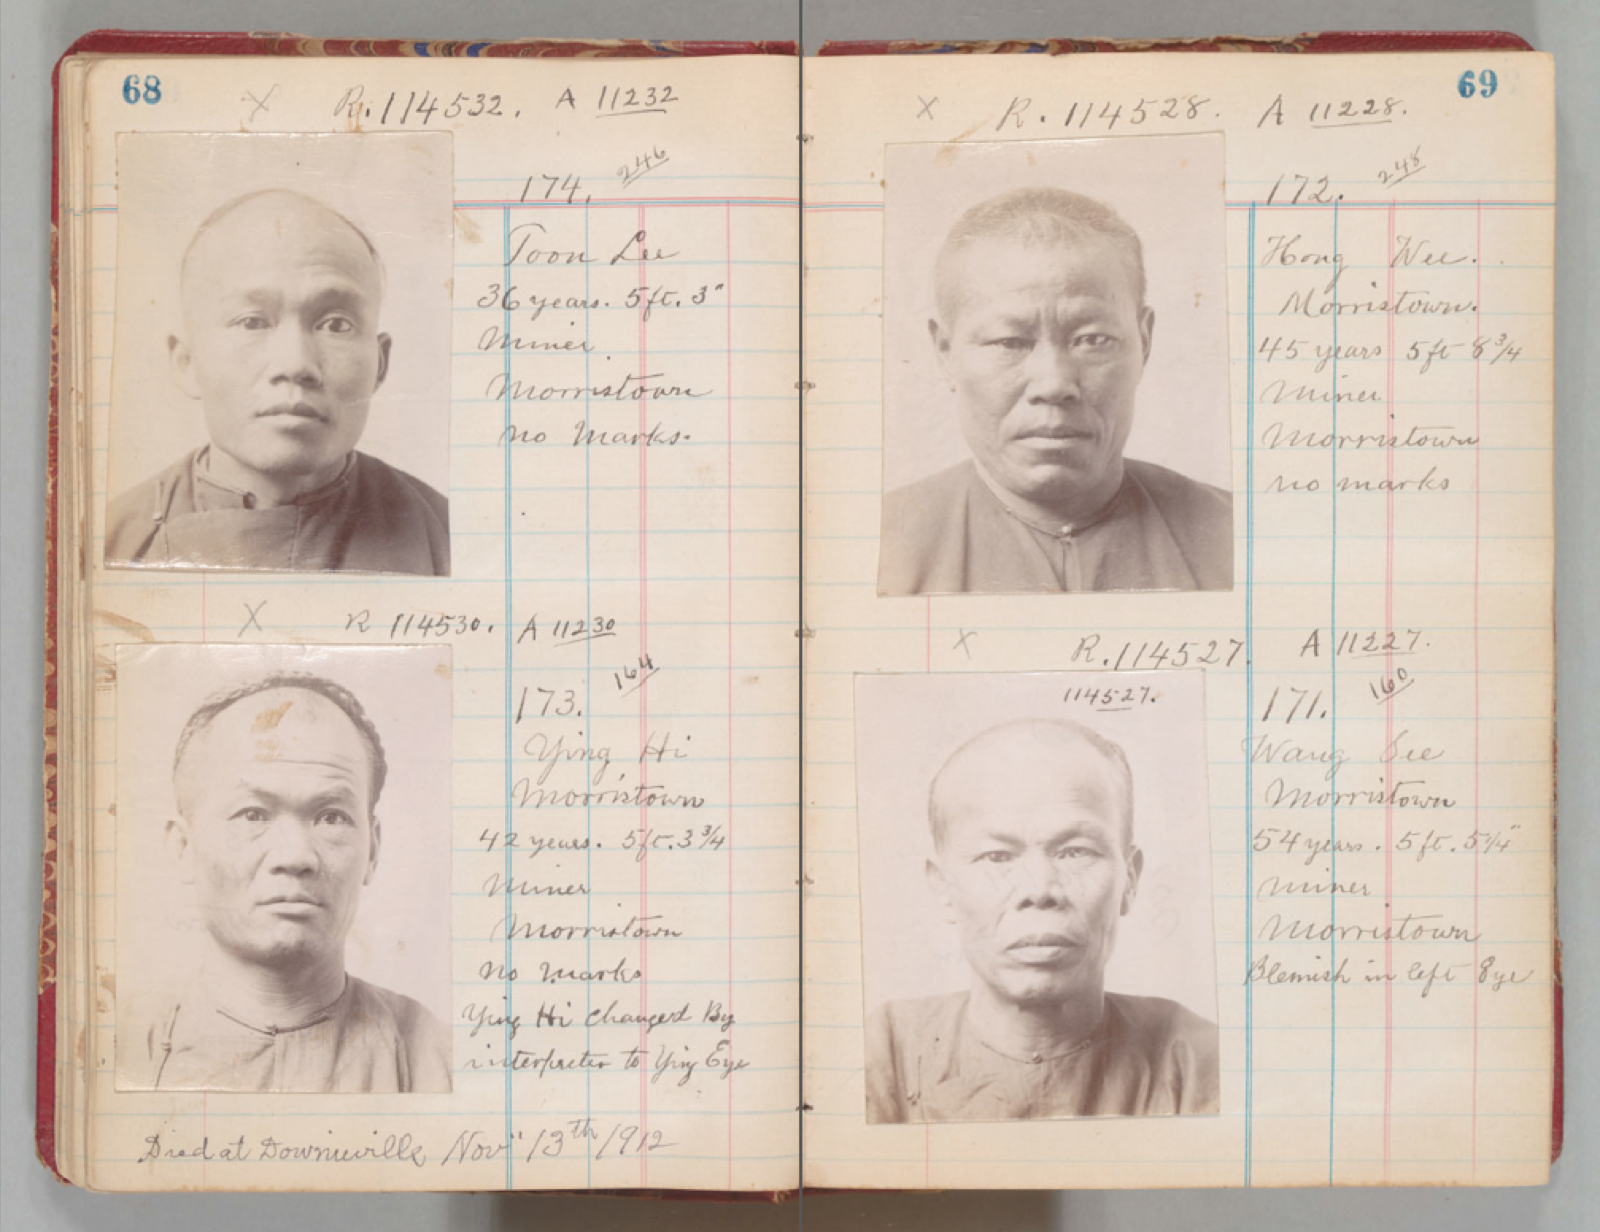 68
X R. 114532. A 11232
246
174.
Toon Lee
36 years. 5 ft. 3"
Miner
Morristown
no Marks.
X R 114530. A 11230
164
173.
Ying Hi
Morristown
42 years. 5 ft. 3 3/4
Miner
Morristown
No Marks
Ying Hi changed By
interpreter to Ying Eye
Died at Downieville Nov" 13th 1912
69
X R. 114528. A 11228.
248
172.
Hong Wee.
Morristown.
45 years 5 ft 8 3/4
Miner
Morristown
no marks
X R. 114527. A 11227.
114527.
160
171.
Wang See
Morristown
54 years. 5 ft. 5 1/4"
miner
Morristown
Blemish in left Eye